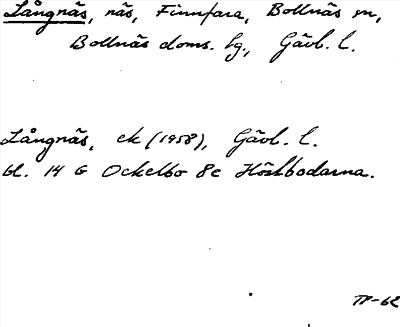 Långnäs, näs, Finnfara, Bollnäs sn,
Bollnäs doms. hg., Gävl. l.
Långnäs, ek (1958), Gävl. l.
bl. 14 G Ockelbo 8c Höstbodarna.
TP-62